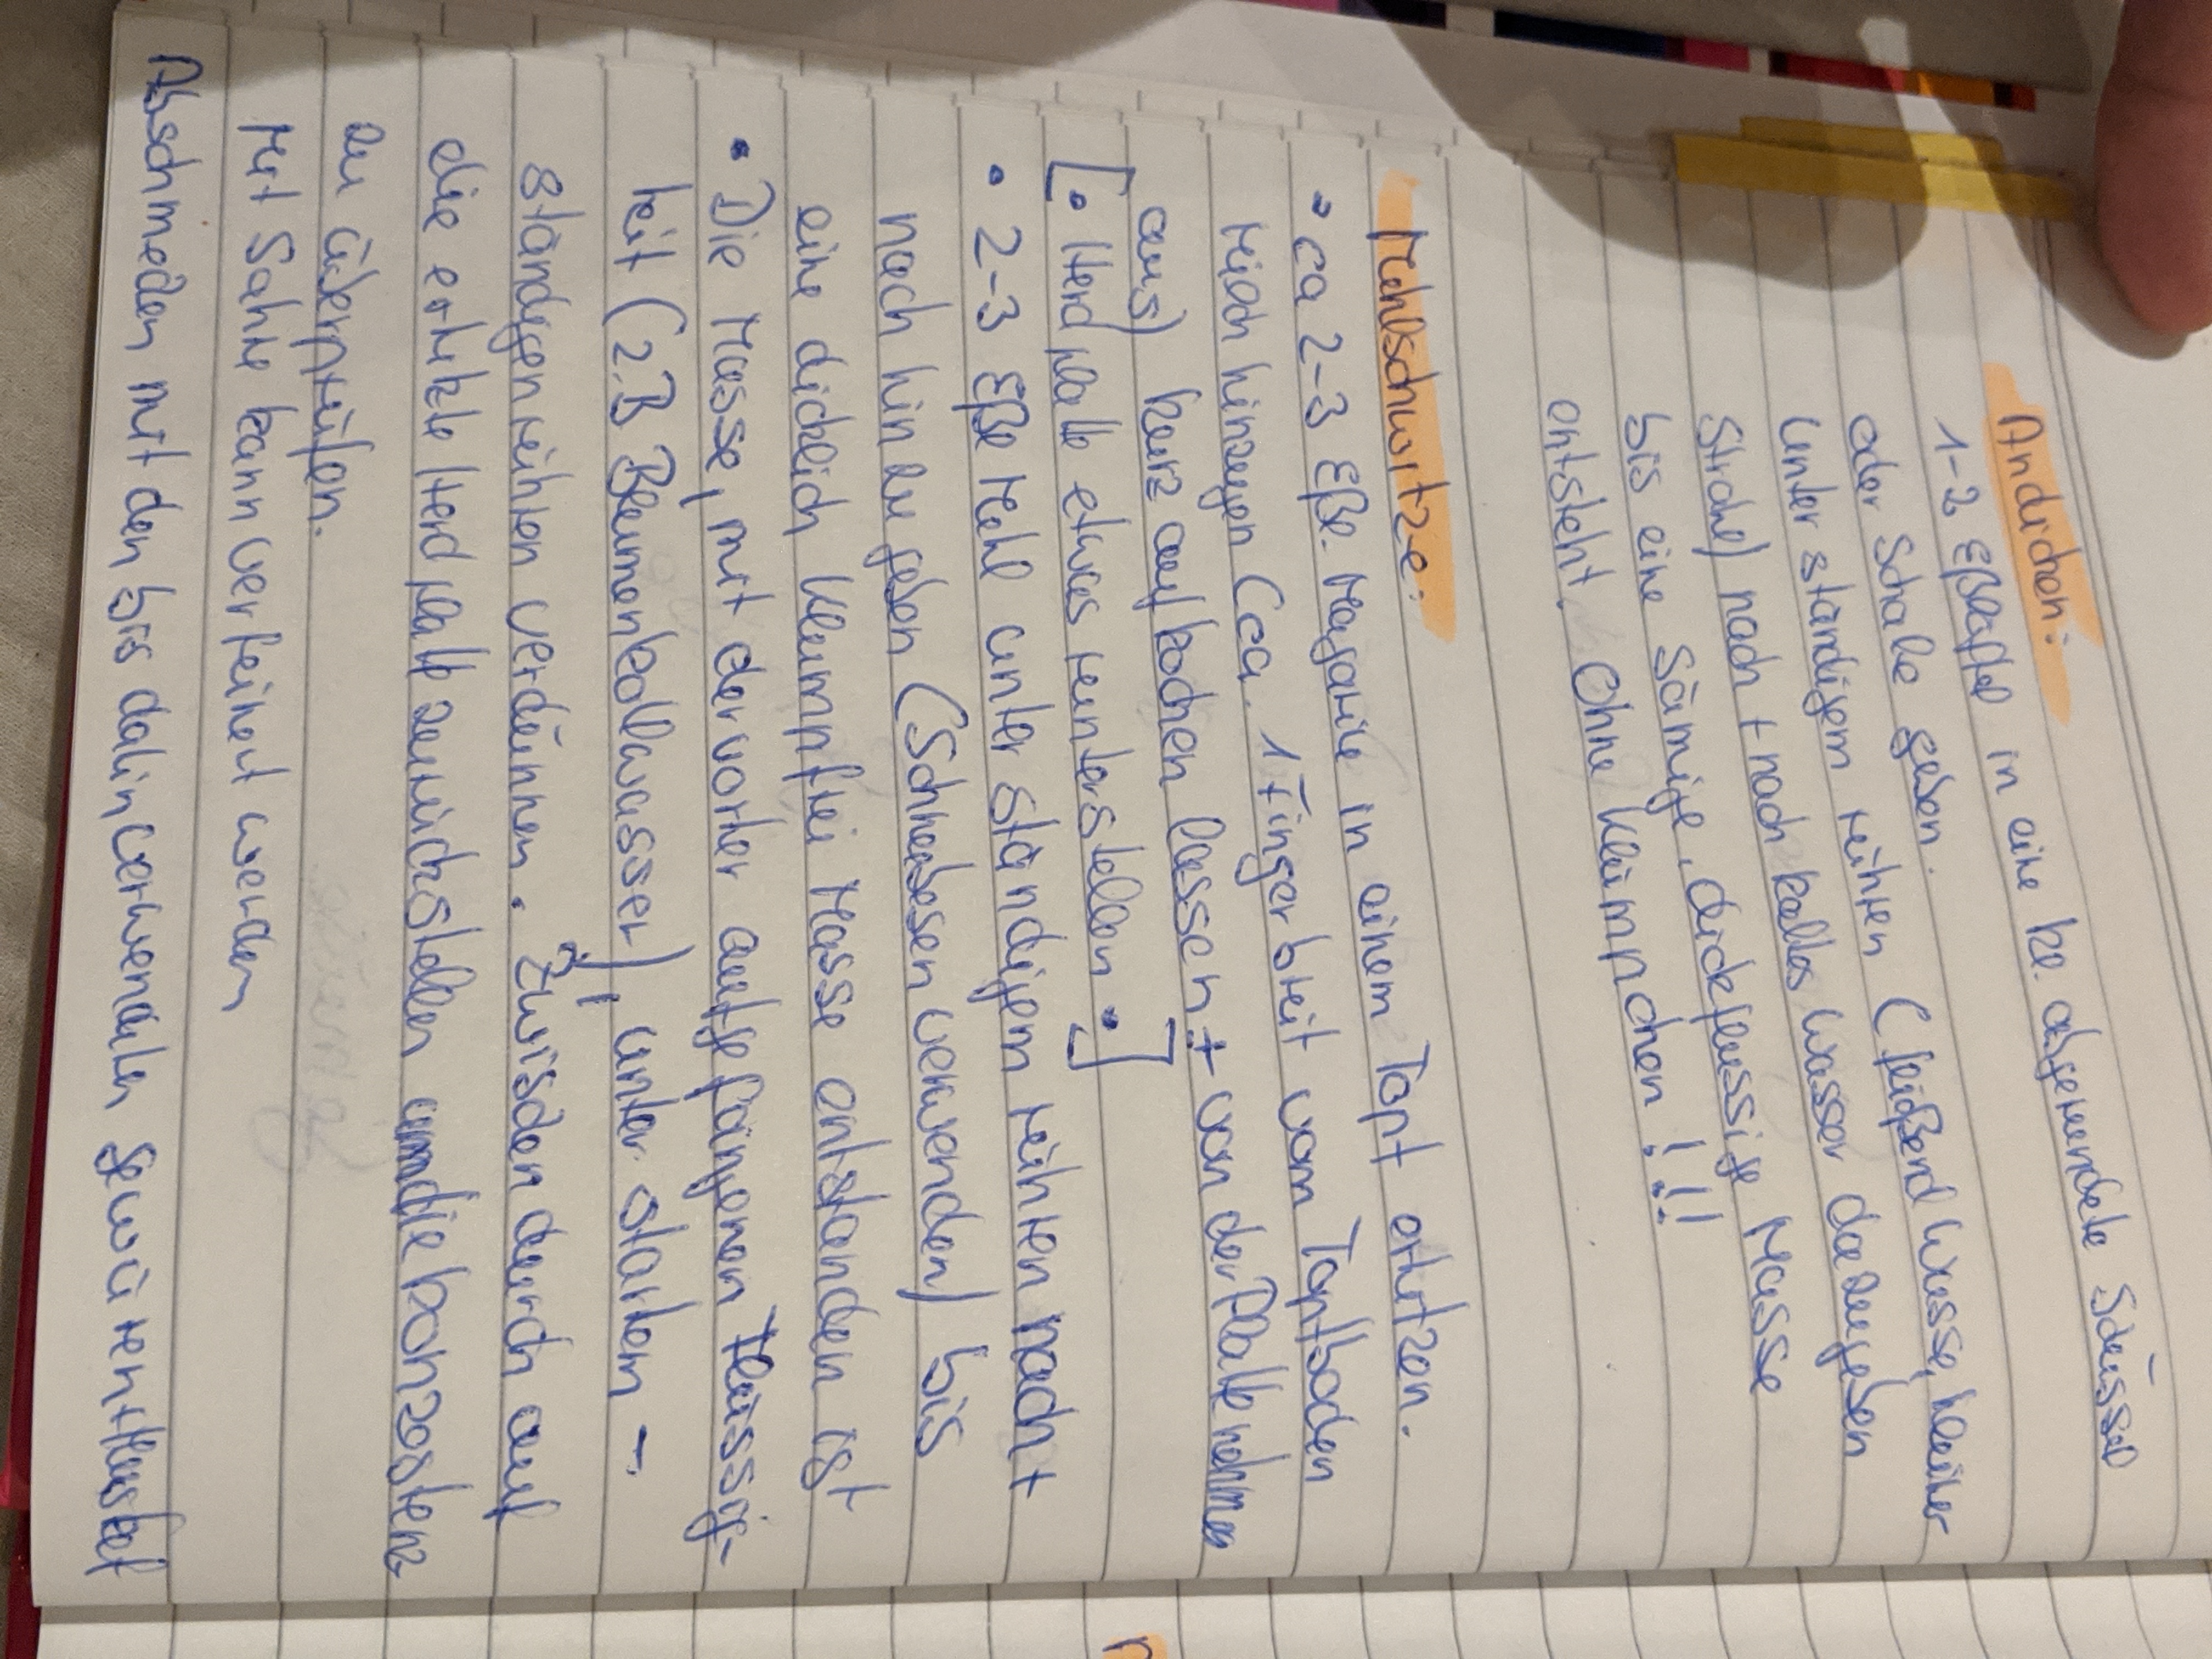 Andicken:
1-2 Eßlöffel in eine ke. abgerundete Schüssel
oder Schale geben.
Unter ständigem rühren (fließend Wasser, kleiner
Strahl) nach + nach kaltes Wasser dazugeben
bis eine sämige, dickflüssige Masse
entsteht. Ohne Klümpchen!!!
Mehlschwitze:
• ca 2-3 Eßl. Margarine in einem Topf erhitzen.
Milch hinzugen (ca. 1 Finger breit vom Topfboden
aus) kurz aufkochen lassen + von der Platte nehmen
[• Herdplatte etwas runterstellen •]
• 2-3 Eßl Mehl unter ständigem rühren nach +
nach hinzugeben (Schneebesen verwenden) bis
eine dicklich klumpfrei Masse entstanden ist
• Die Masse, mit der vorher aufgefangenen Flüssig-
keit (z.B Blumenkohlwasser), unter starken -
ständigen rühren verdünnen. Zwischendurch auf
die erhitzte Herdplatte zurückstellen um die Konzestenz
zu überprüfen.
Mit Sahne kann verfeinert werden
Abschmecken mit den bis dahin verwendeten